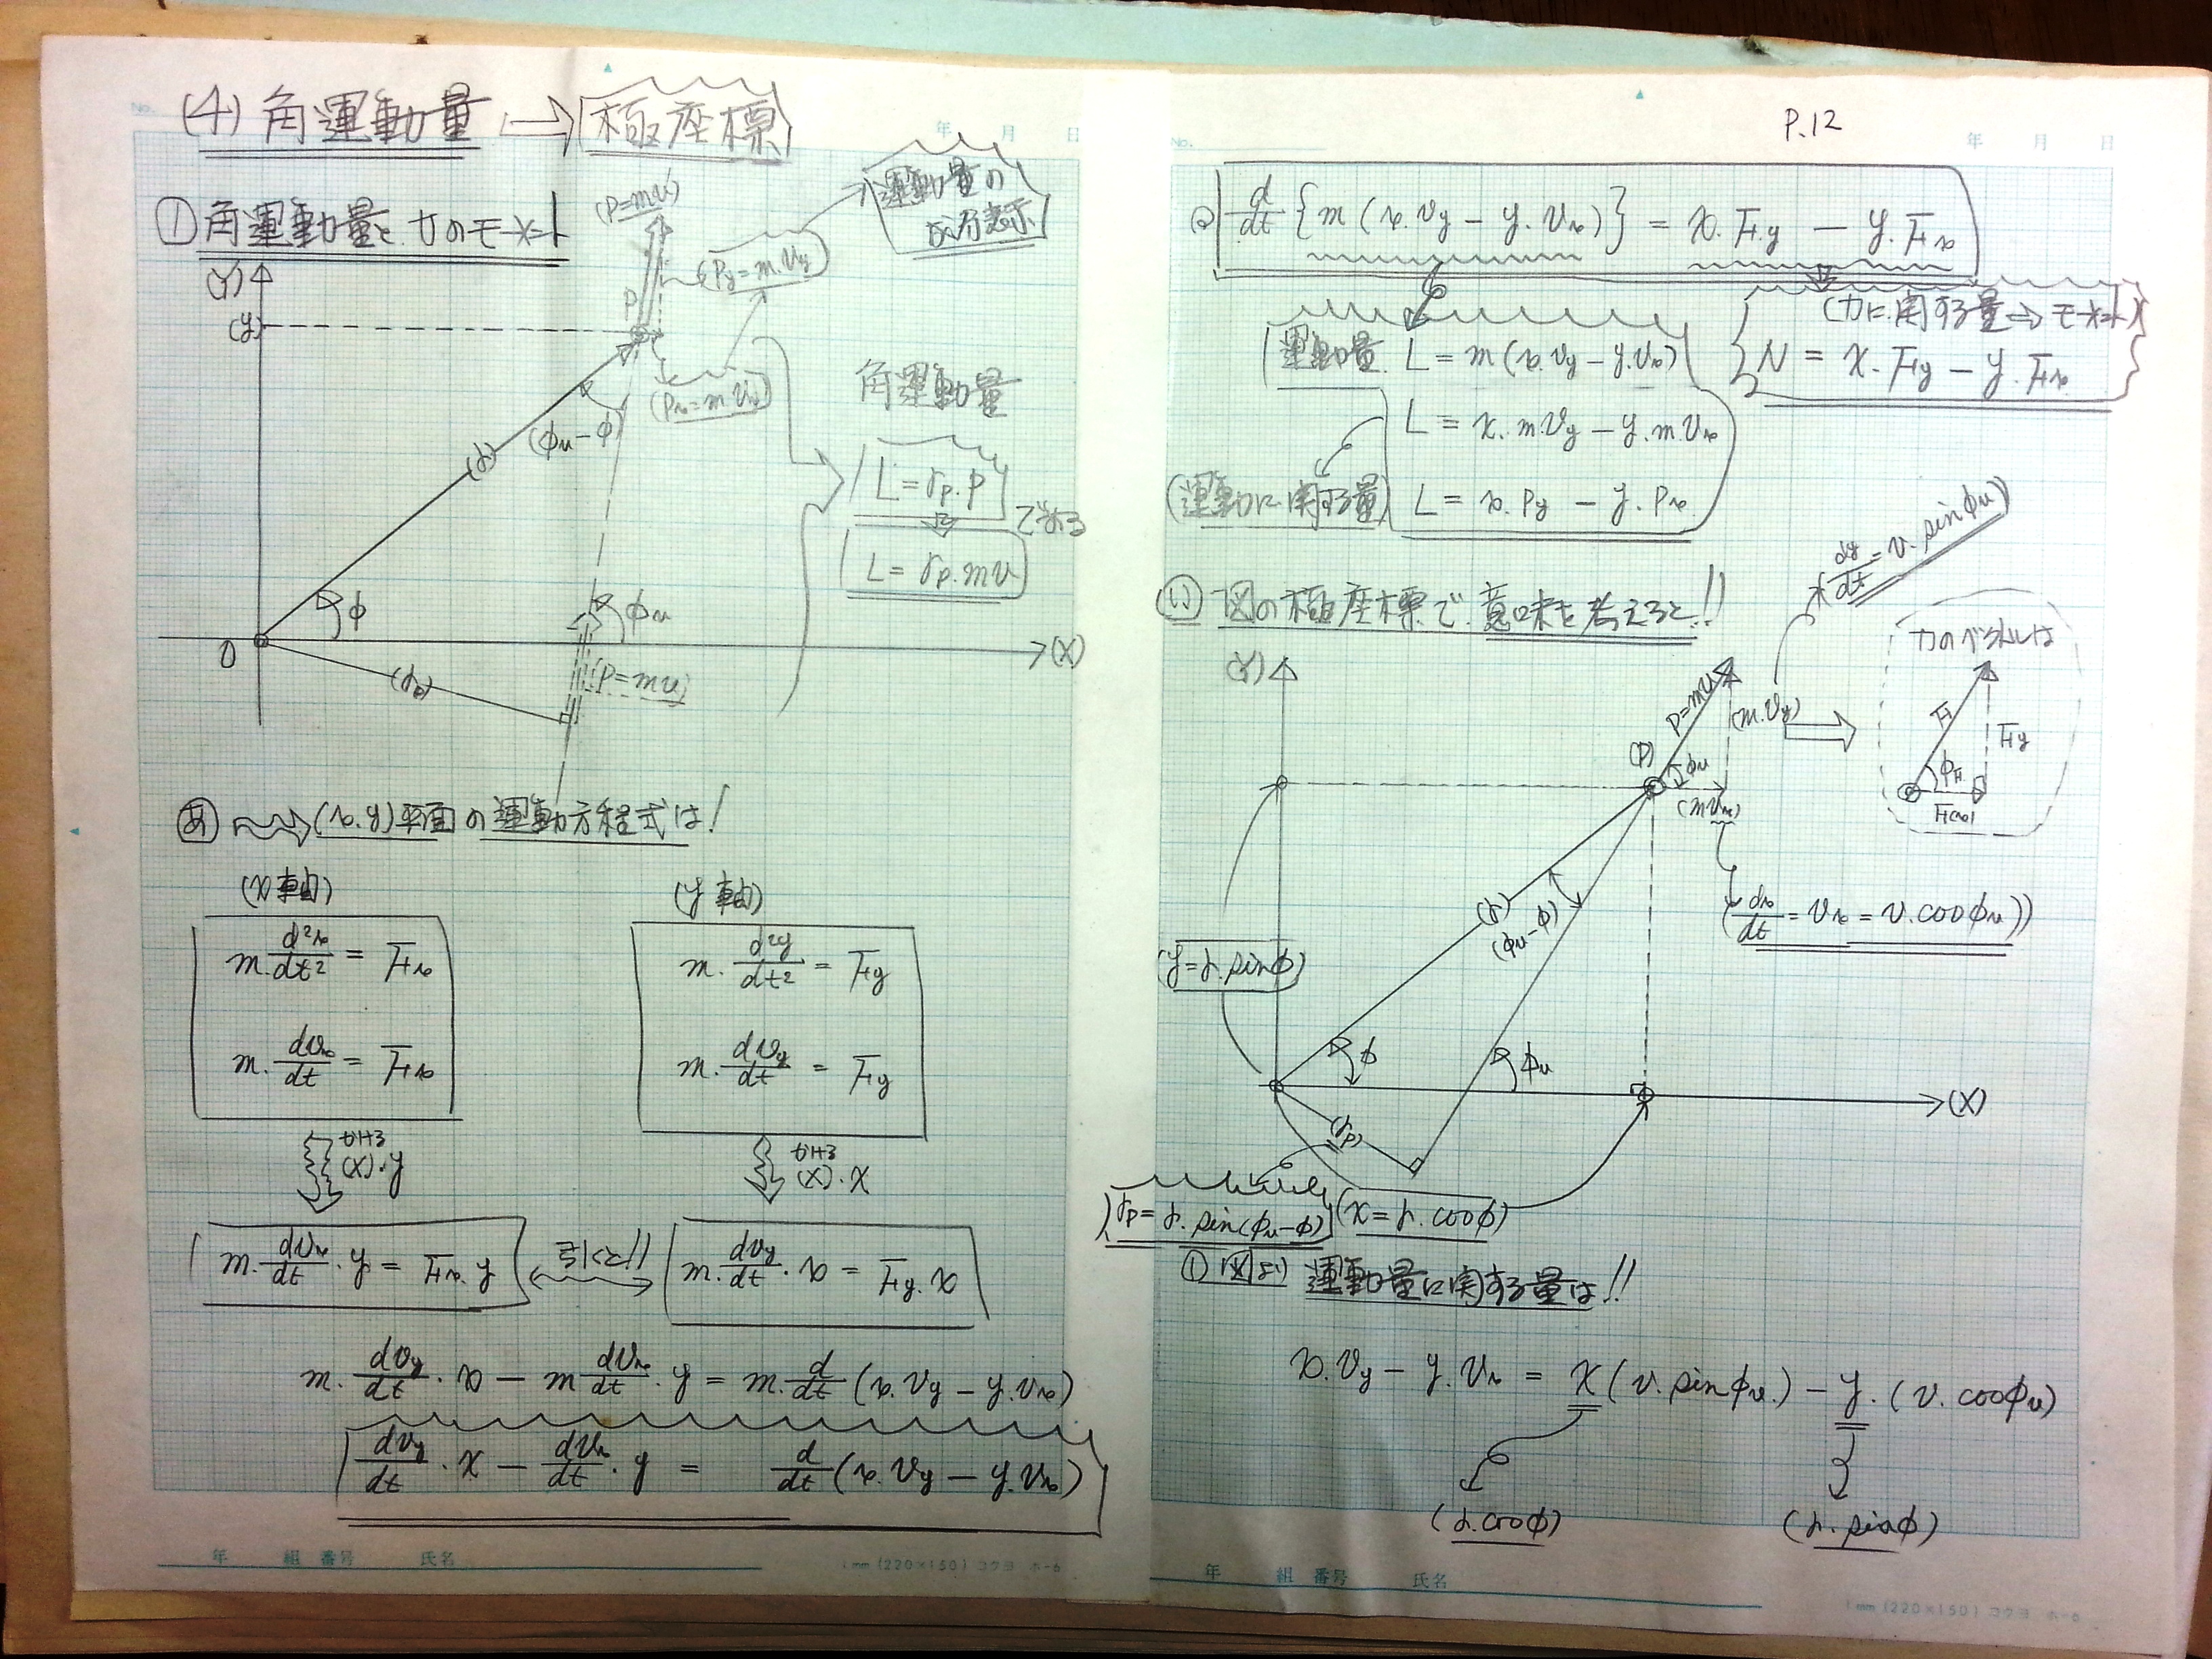 (4) 角運動量 ⇒ 極座標
① 角運動量と力のモーメント
(Y)
(y)
(P=mv)
P
(Py=m.Vy)
運動量の
成分表示
(Px=m.Vx)
(φv-φ)
(r)
角運動量
L=rp.P
である
L=rp.mv
φ
φv
O
(X)
(rp)
(P=mv)
あ (x.y)平面の運動方程式は!
(x軸)
(y軸)
m.d²x/dt² = Fx
m.d²y/dt² = Fy
m.dVx/dt = Fx
m.dVy/dt = Fy
かける
(X).y
かける
(X).x
m.dVx/dt.y = Fx.y
引くと!!
m.dVy/dt.x = Fy.x
m.dVy/dt.x - m dVx/dt.y = m.d/dt(x.Vy - y.Vx)
dVy/dt.x - dVx/dt.y = d/dt(x.Vy - y.Vx)
年 組 番号 氏名
1mm (220×150) コクヨ ホ-6
P.12
No.
年 月 日
d/dt{m(x.Vy - y.Vx)} = x.Fy - y.Fx
(力に関する量⇒モーメント)
運動量 L = m(x.Vy - y.Vx)
N = x.Fy - y.Fx
L = x.m.Vy - y.m.Vx
(運動に関する量)
L = x.Py - y.Px
dy/dt = v.sinφv)
い 図の極座標で意味を考えると!!
力のベクトルは
(Y)
P=mv
(m.Vy)
F
Fy
φF
(P)
φv
(mVx)
(r)
(φv-φ)
(dx/dt = Vx = v.cosφv)
(y=r.sinφ)
φ
φv
(X)
(rp)
rp=r.sin(φv-φ)
(x=r.cosφ)
①図より 運動量に関する量は!!
x.Vy - y.Vx = x(v.sinφv.) - y.(v.cosφv)
(r.cosφ)
(r.sinφ)
年 組 番号 氏名
1mm (220×150) コクヨ ホ-6